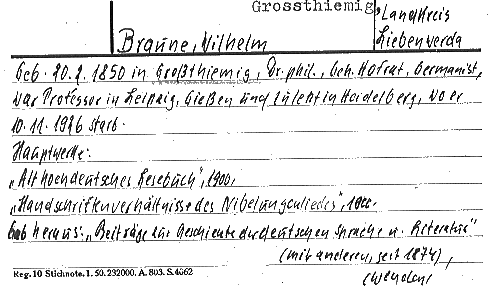 Grossthiemig, Landkreis
Braune, Wilhelm Liebenwerda
Geb. 20.2.1850 in Großthiemig, Dr. phil., Geh. Hofrat, Germanist,
war Professor in Leipzig, Gießen und zuletzt in Heidelberg, wo er
10.11.1926 starb.
Hauptwerke:
„Althochdeutsches Lesebuch", 1900,
„Handschriftenverhältnisse des Nibelungenliedes", 1900.
Gab heraus: „Beiträge zur Geschichte der deutschen Sprache u. Literatur"
(mit anderen, seit 1874),
(wenden)
Reg. 10 Stichnote. 1. 50. 232000. A. 803. S. 4662